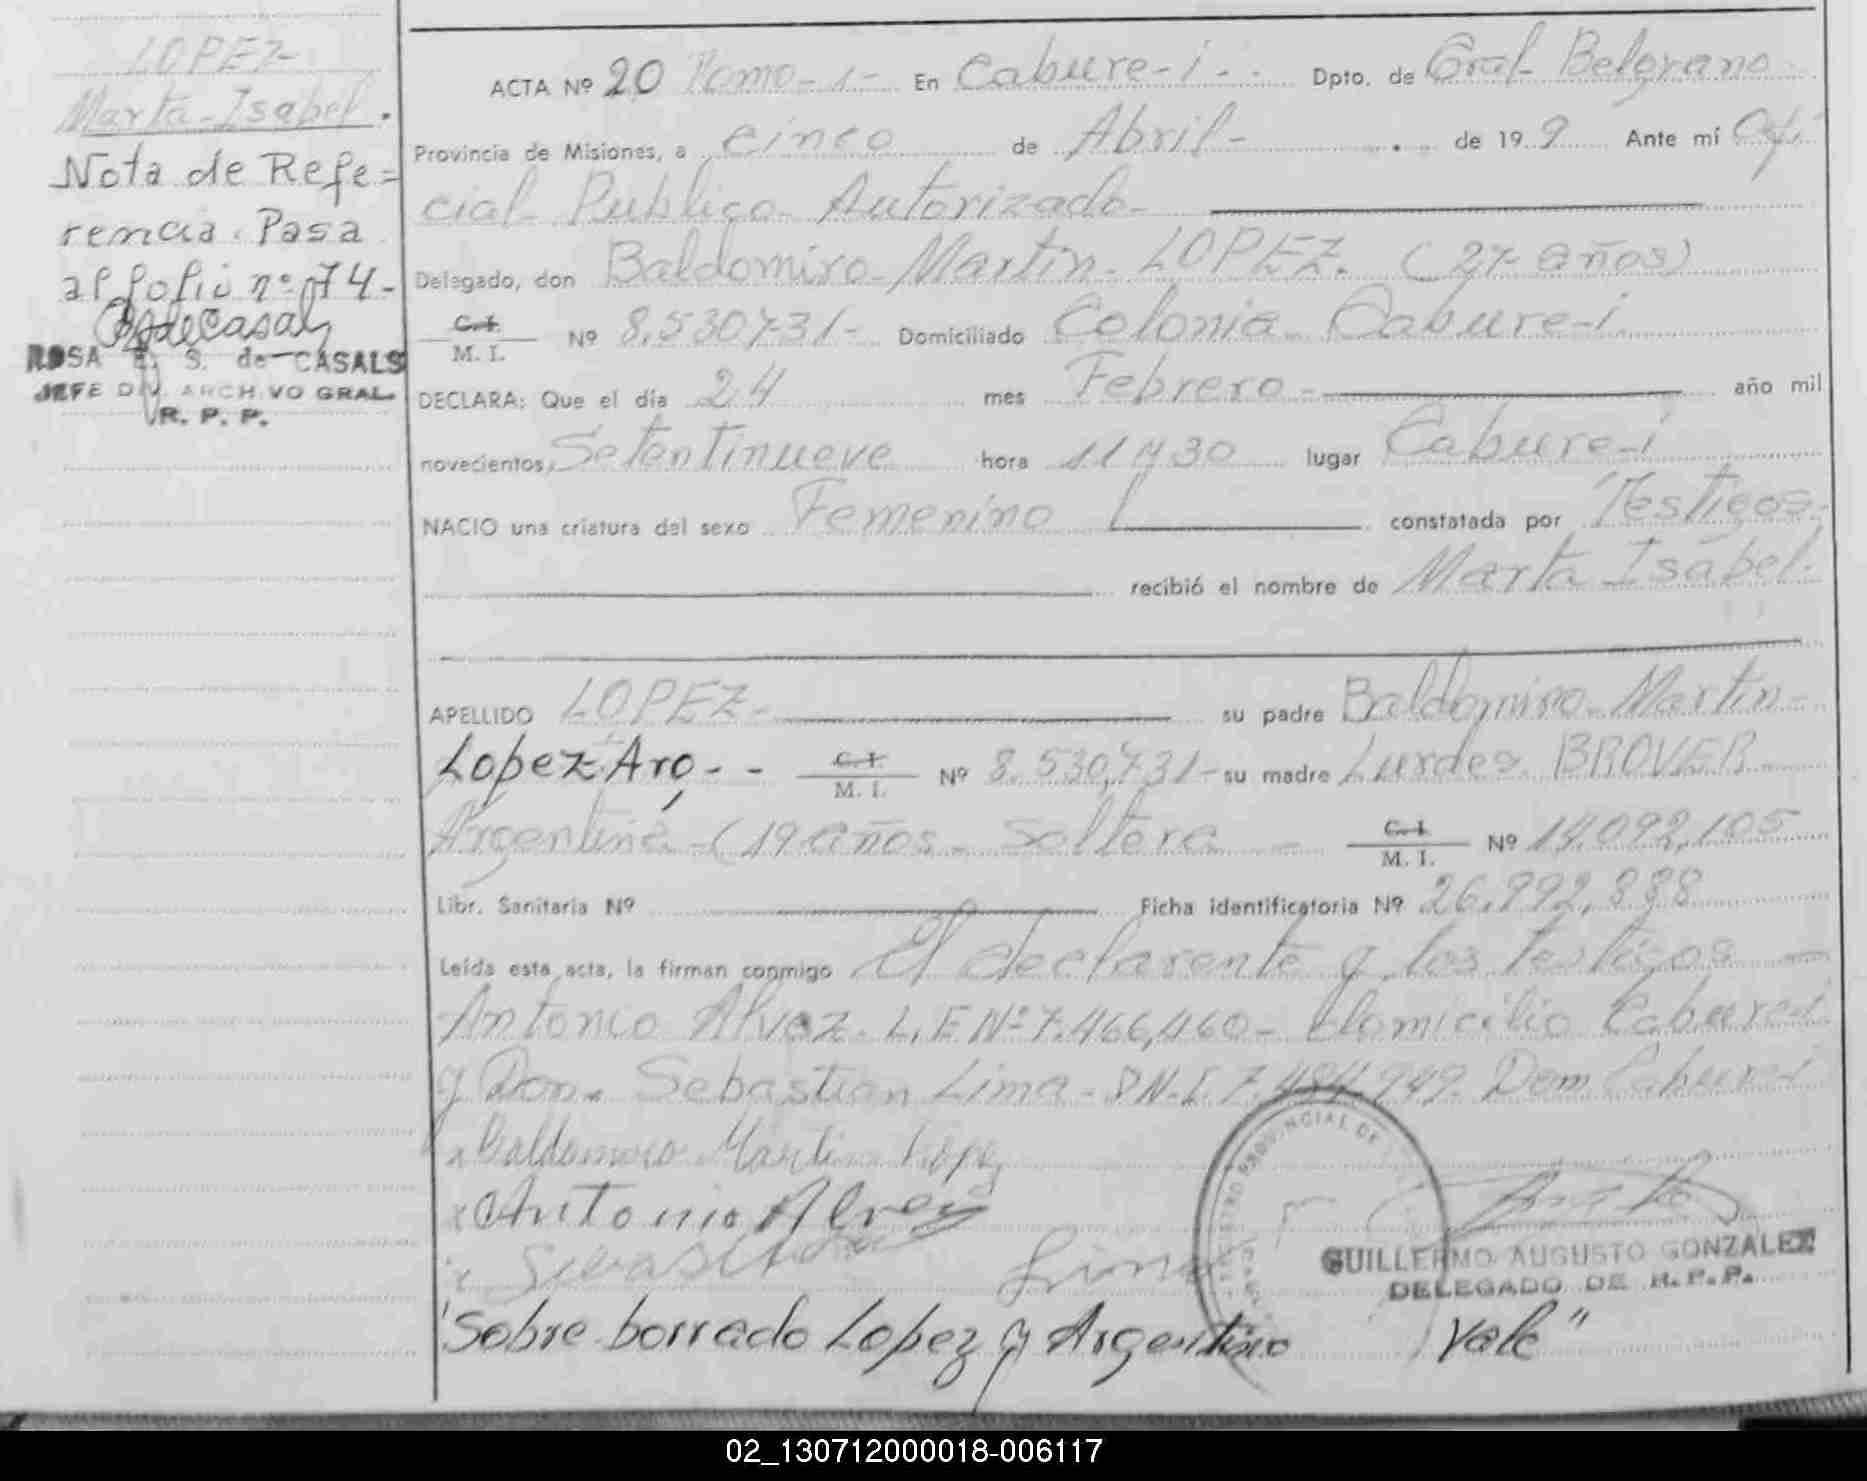 LOPEZ-
Marta-Isabel.
Nota de Refe=
rencia. Pasa
al folio nº 74-
ROSA E. S. de CASALS
JEFE DIV. ARCHIVO GRAL.
R. P. P.
ACTA Nº 20 Tomo-1- En Cabure-i- Dpto. de Gral Belgrano
Provincia de Misiones, a cinco de Abril- de 19 9 Ante mí Ofi
cial Publico Autorizado-
Delegado, don Baldomiro-Martin-LOPEZ. (27 años)
C.I. M. I. Nº 8.530.731- Domiciliado Colonia Cabure-i
DECLARA: Que el día 24 mes Febrero- año mil
novecientos, Setentinueve hora 11 y 30 lugar Cabure-i
NACIO una criatura del sexo Femenino constatada por Testigos
recibió el nombre de Marta Isabel
APELLIDO LOPEZ- su padre Baldomiro-Martin-
Lopez-Arg-- C.I. M. I. Nº 8.530.731- su madre Lurdes BROVER
Argentina-(19 años- Soltera - C.I. M. I. Nº 14.092.105
Libr. Sanitaria Nº Ficha identificatoria Nº 26.992.898
Leída esta acta, la firman conmigo El declarante y los testigos
Antonio Alvez. L.E Nº 7.466.460- domicilio Cabure-i
y Don. Sebastian Lima-D.N.I. 7.484.949. Dom Cabure-i
x Baldomiro Martin Lopez
x Antonio Alvez
x Sebastian Lima
PROVINCIAL DE
GUILLERMO AUGUSTO GONZALEZ
DELEGADO DE R.P.P.
"Sobre borrado Lopez y Argentino Vale"
02_130712000018-006117